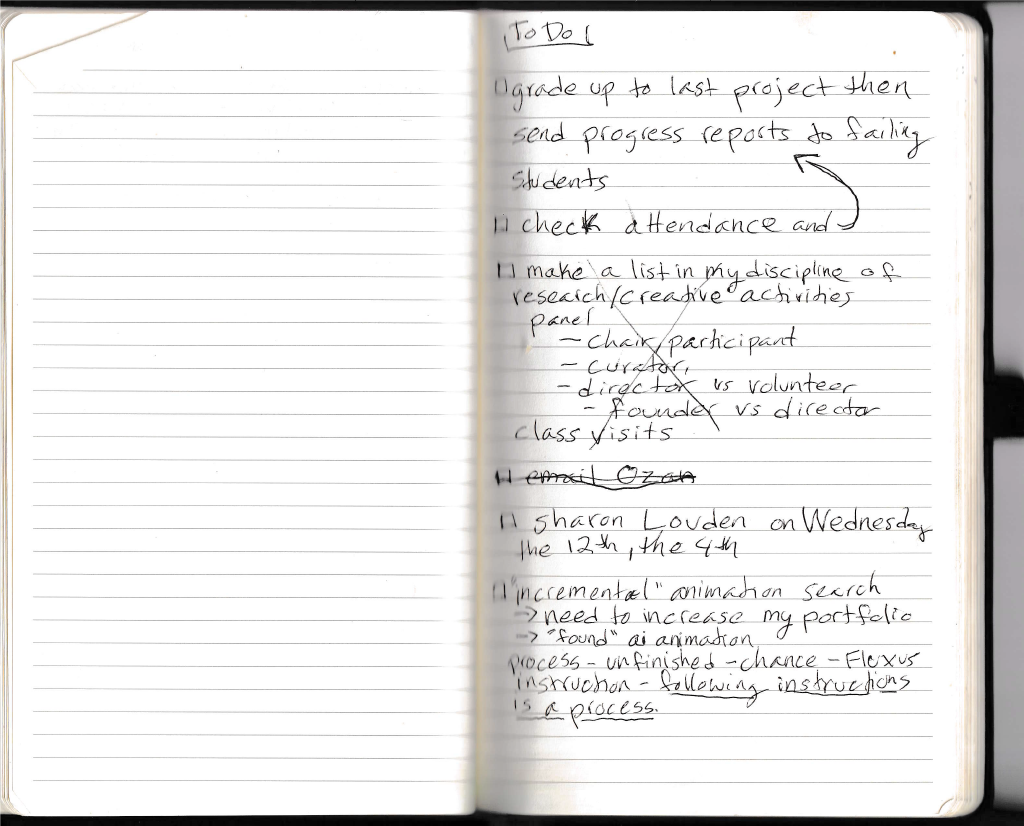 To Do
grade up to last project then
send progress reports to failing
students
check attendance and
make a list in my discipline of
research/creative activities
panel
- chair/participant
- curator,
- director vs volunteer
- founder vs director
class visits
email Ozan
Sharon Louden on Wednesday
the 12th, the 4th
"incremental" animation search
→ need to increase my portfolio
→ "found" ai animation
process - unfinished - chance - Fluxus
instruction - following instructions
is a process.